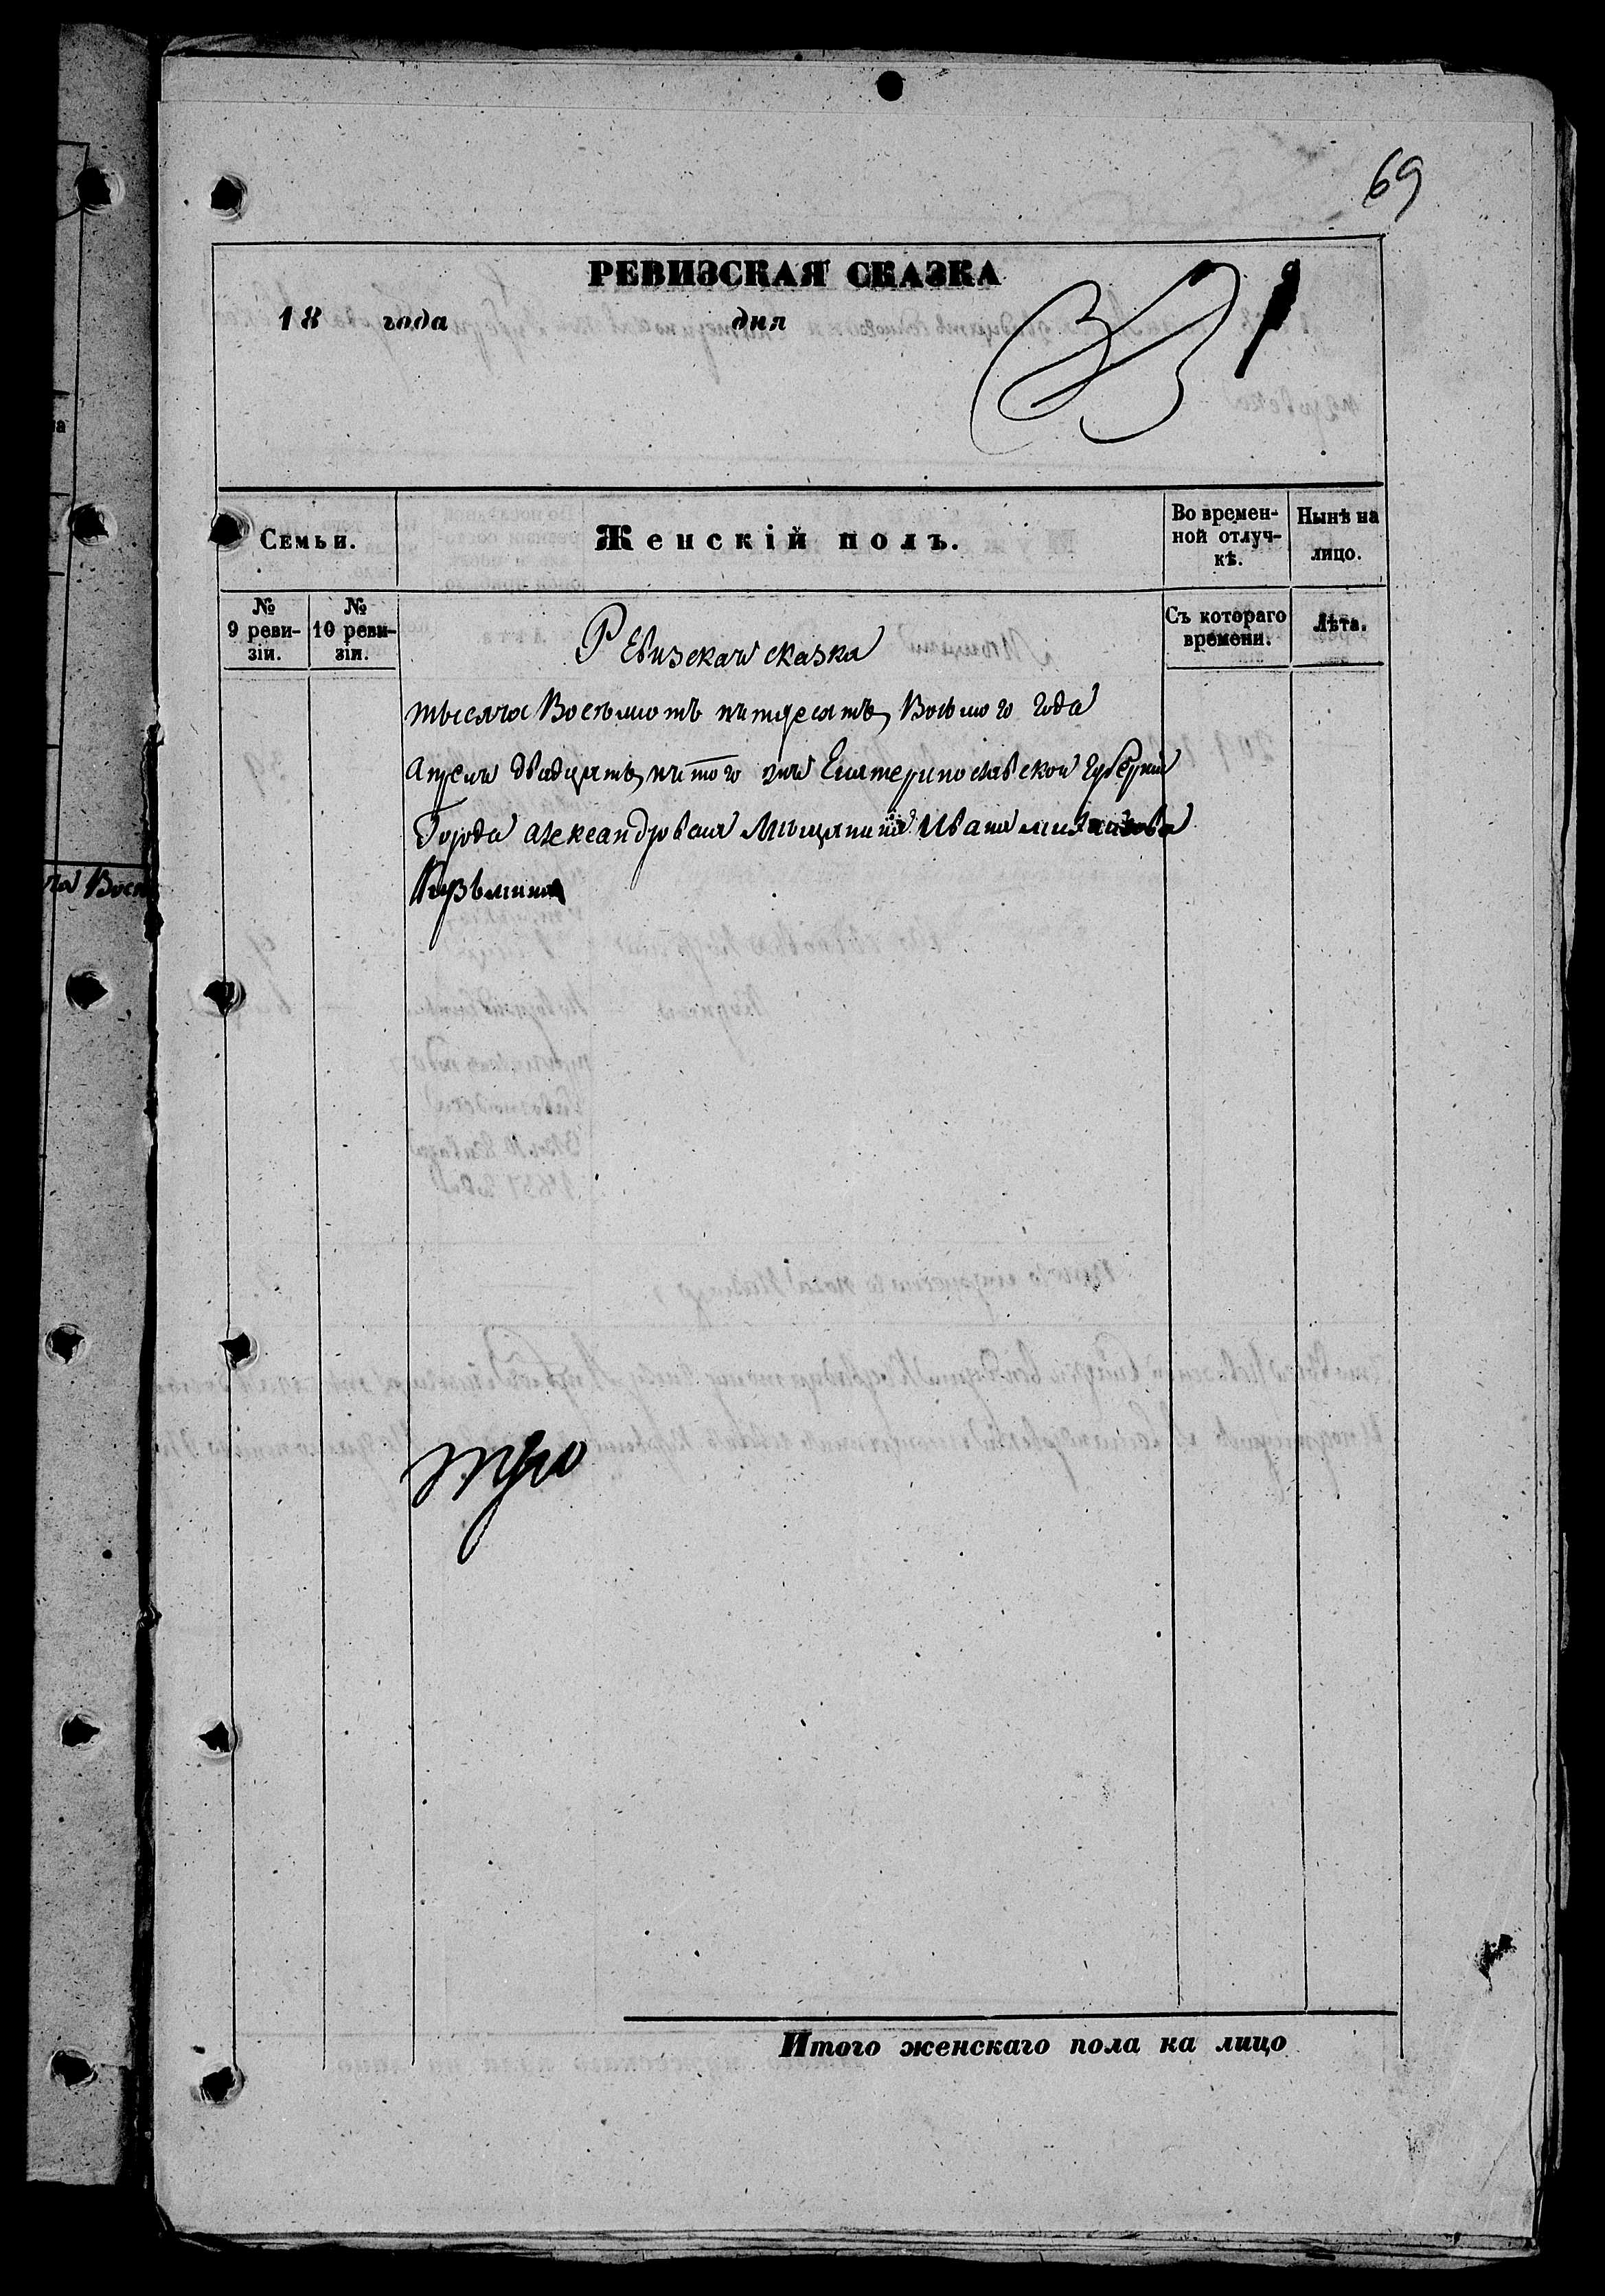 69
РЕВИЗСКАЯ СКАЗКА
18 года дня
Семьи.
Женскій полъ.
Во времен-
ной отлуч-
кѣ.
Нынѣ на
лицо.
№
9 реви-
зіи.
№
10 реви-
зіи.
Съ котораго
времени.
Лѣта.
Ревизская сказка
тысяча Восемьсотъ пятдесятъ Восьмого года
Апреля двадцать пятого дня Екатеринославской Губерніи
Города Александровска Мещанина Ивана
Кузьмина
Итого женскаго пола на лицо